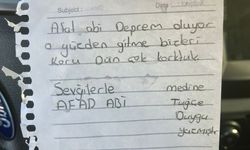 Subject:
Afat abi Deprem oluyor
o yüzden gitme bizleri
Koru Dan çok korktuk
Sevgilerle medine
AFAD ABİ Tuğçe
Duygu
yazmıştır
Ford